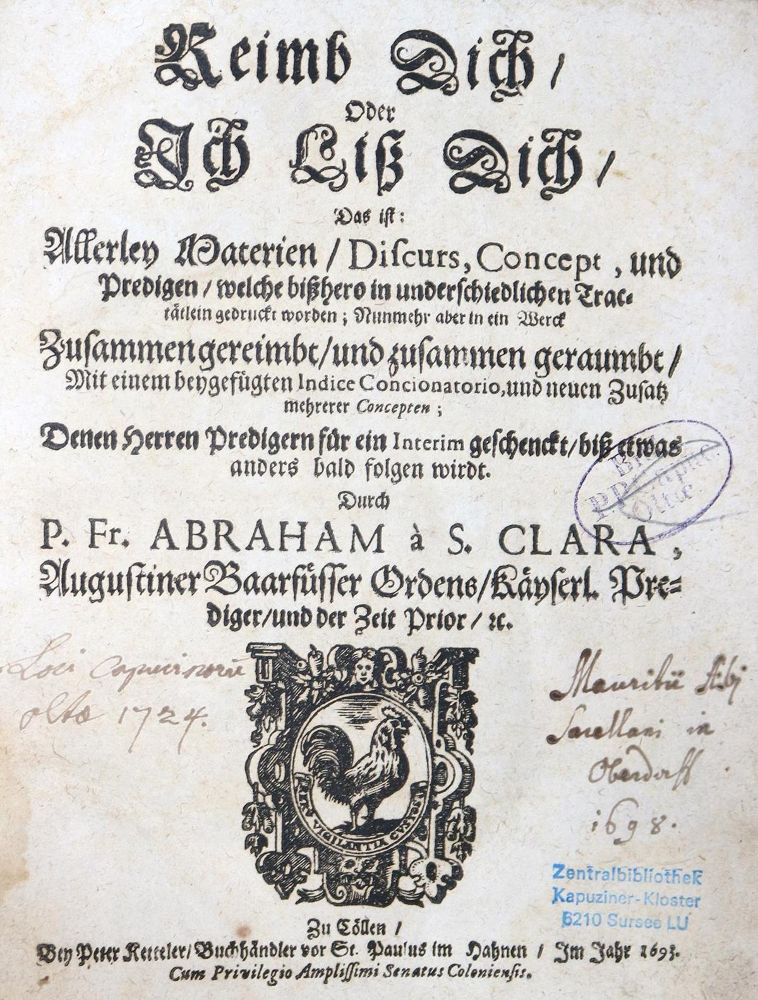 Reimb Dich /
Oder
Ich Liß Dich /
Das ist:
Allerley Materien / Discurs, Concept, und
Predigen / welche bißhero in underschiedlichen Trac-
tätlein gedruckt worden; Nunmehr aber in ein Werck
Zusammen gereimbt / und zusammen geraumbt /
Mit einem beygefügten Indice Concionatorio, und neuen Zusatz
mehrerer Concepten;
Denen Herren Predigern für ein Interim geschenckt / biß etwas
anders bald folgen wirdt.
Durch
P. Fr. ABRAHAM à S. CLARA,
Augustiner Baarfüsser Ordens / Käyserl. Pre-
diger / und der Zeit Prior / ꝛc.
Loci Capucinorũ
Oltæ 1724.
Mauritii
Sacellani in
Oberdorff
1698.
VIGILANTIA CUSTOS
PP. Capuc.
Oltæ
Zentralbibliothek
Kapuziner-Kloster
6210 Sursee LU
Zu Cöllen /
Bey Peter Ketteler / Buchhändler vor St. Paulus im Hahnen / Im Jahr 1693.
Cum Privilegio Amplissimi Senatus Coloniensis.